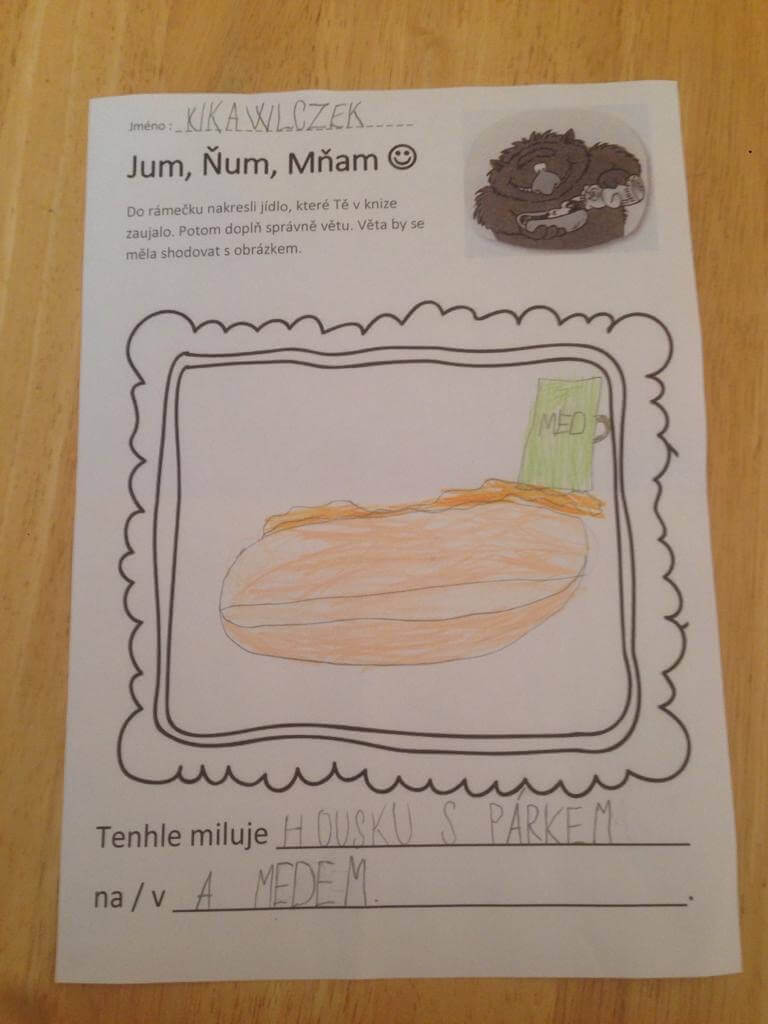 Jméno : KIKA WLCZEK
Jum, Ňum, Mňam ☺
Do rámečku nakresli jídlo, které Tě v knize
zaujalo. Potom doplň správně větu. Věta by se
měla shodovat s obrázkem.
MED
Tenhle miluje HOUSKU S PÁRKEM
na / v A MEDEM.